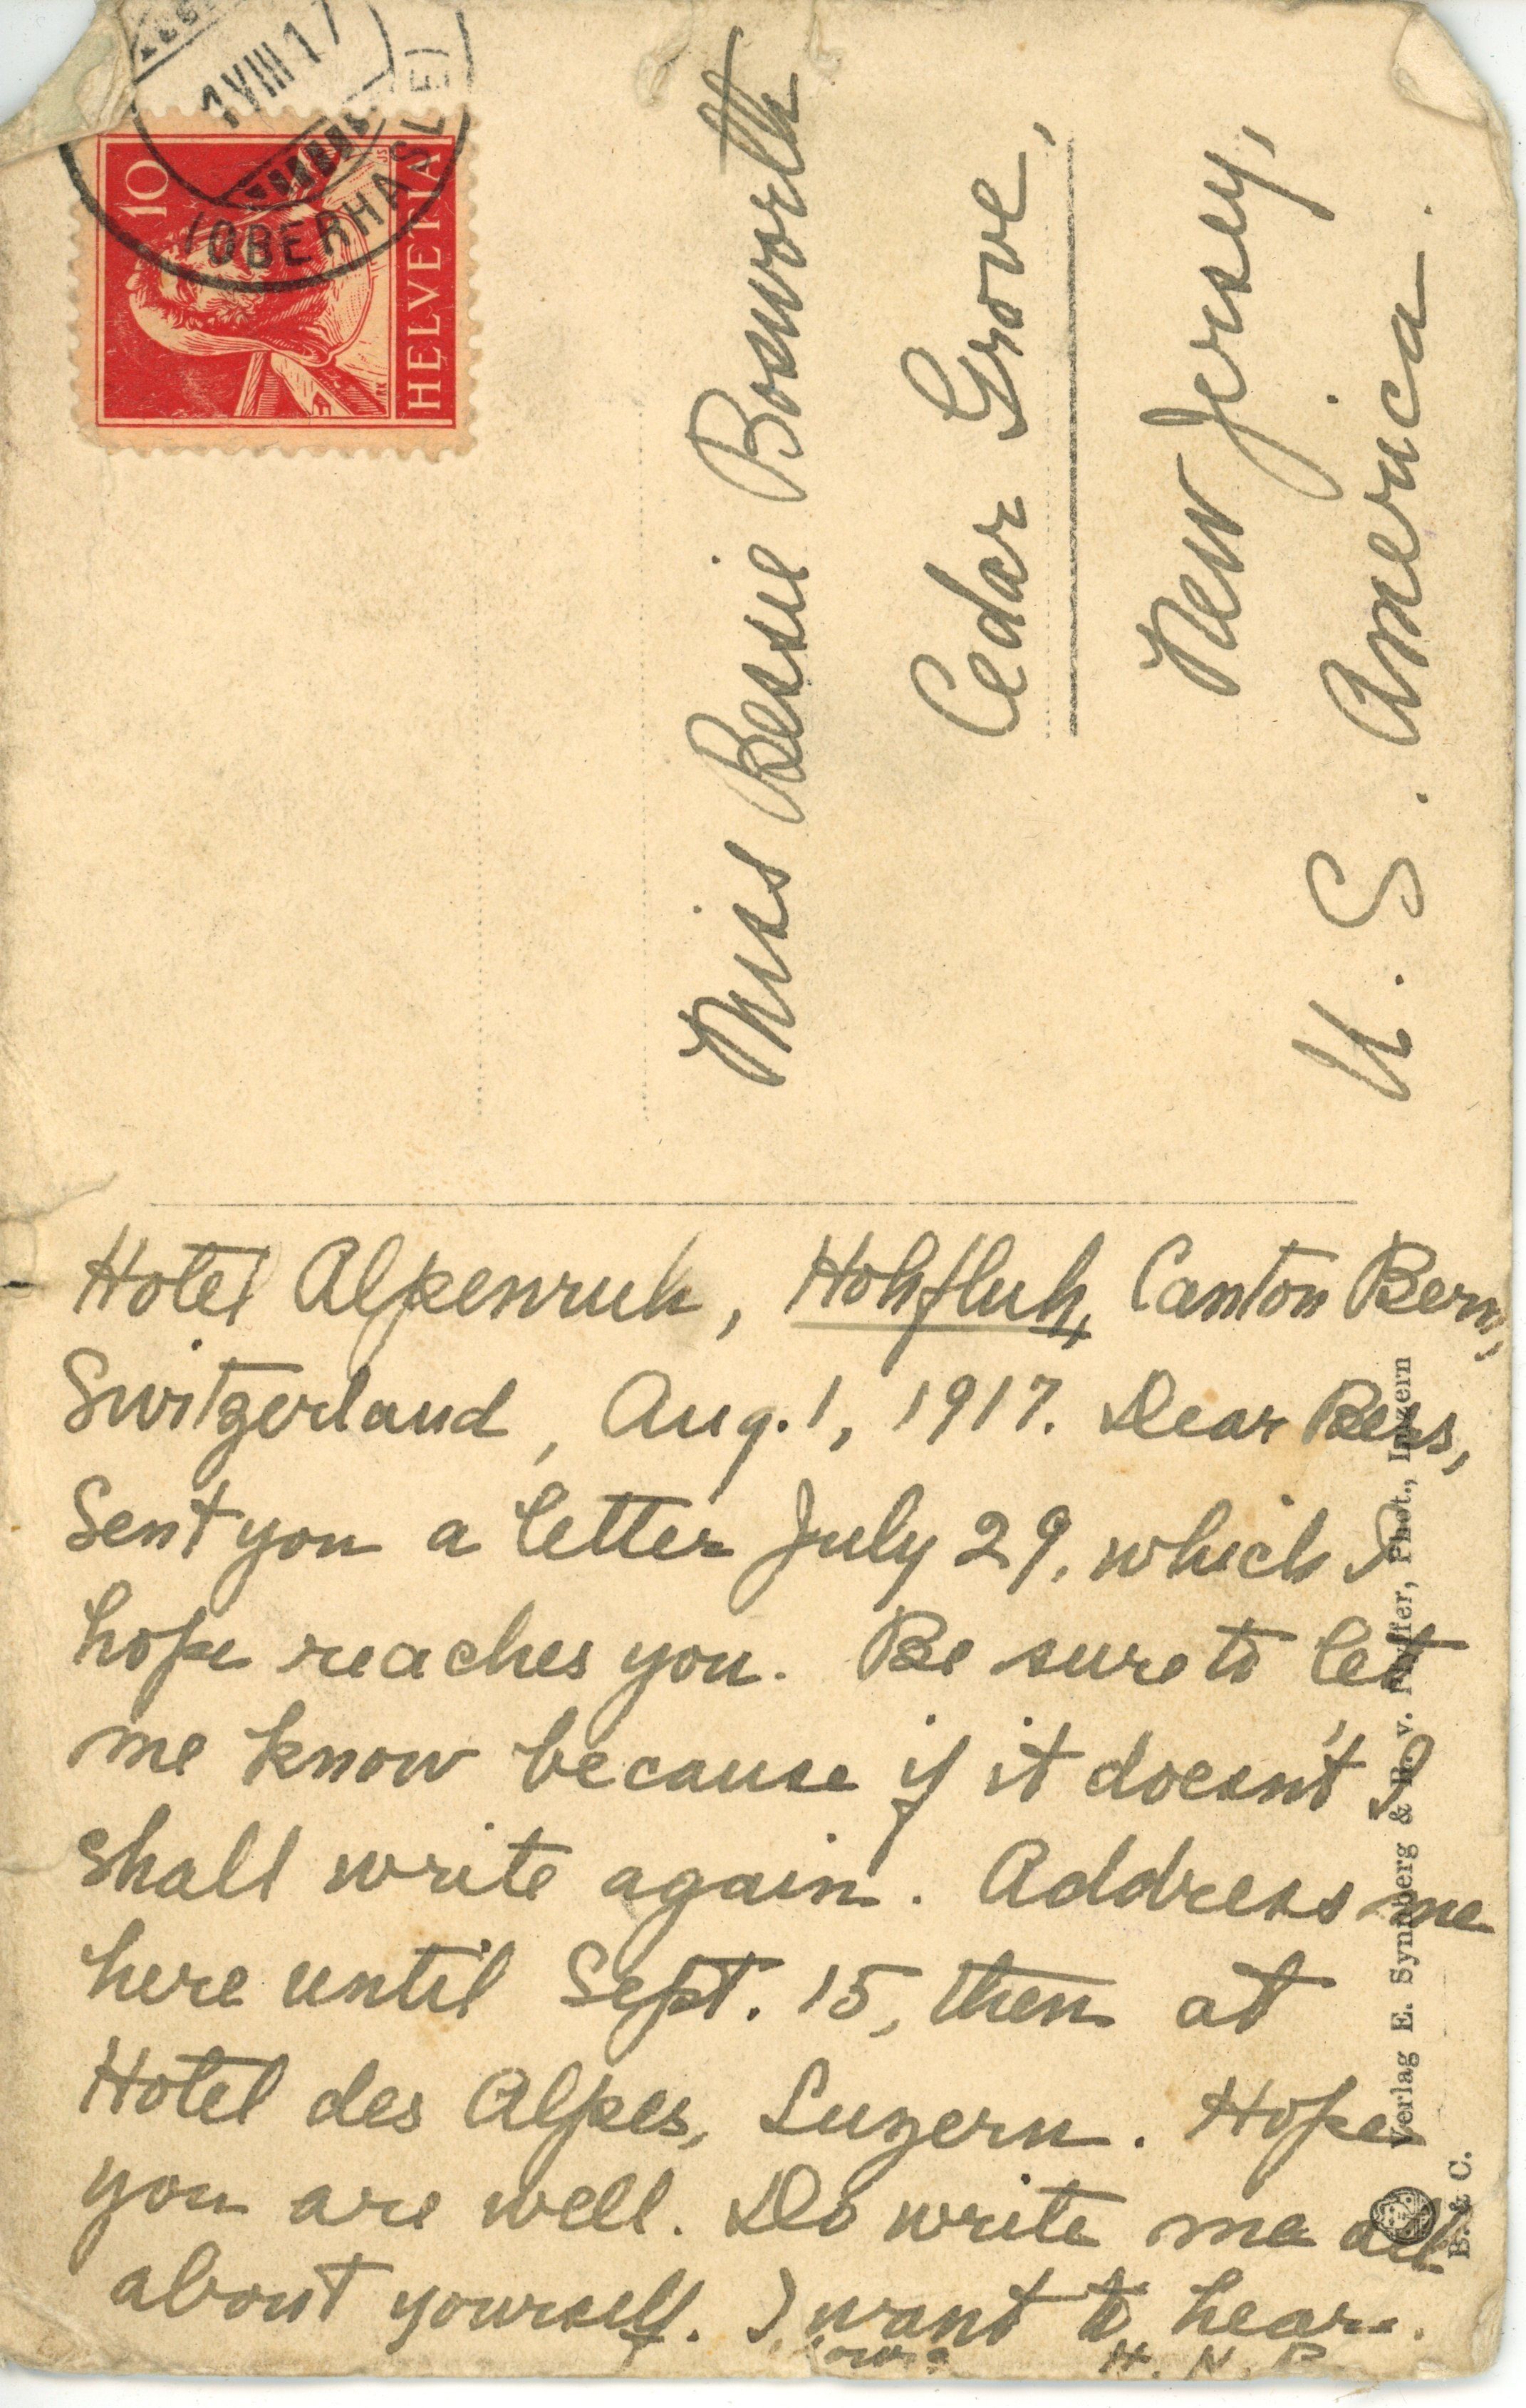 1 VIII 17
(OBERHASLE)
10
HELVETIA
Miss Bessie Bosworth
Cedar Grove,
New Jersey,
U. S. America.
Hotel Alpenruh, Hohfluh, Canton Bern,
Switzerland, Aug. 1, 1917. Dear Bess,
Sent you a letter July 29, which I
hope reaches you. Be sure to let
me know because if it doesn't I
shall write again. Address me
here until Sept. 15, then at
Hotel des Alpes, Luzern. Hope
you are well. Do write me all
about yourself. I want to hear.
H. N. B.
Verlag E. Synnberg & R. v. Pfyffer, Phot., Luzern
B. & C.